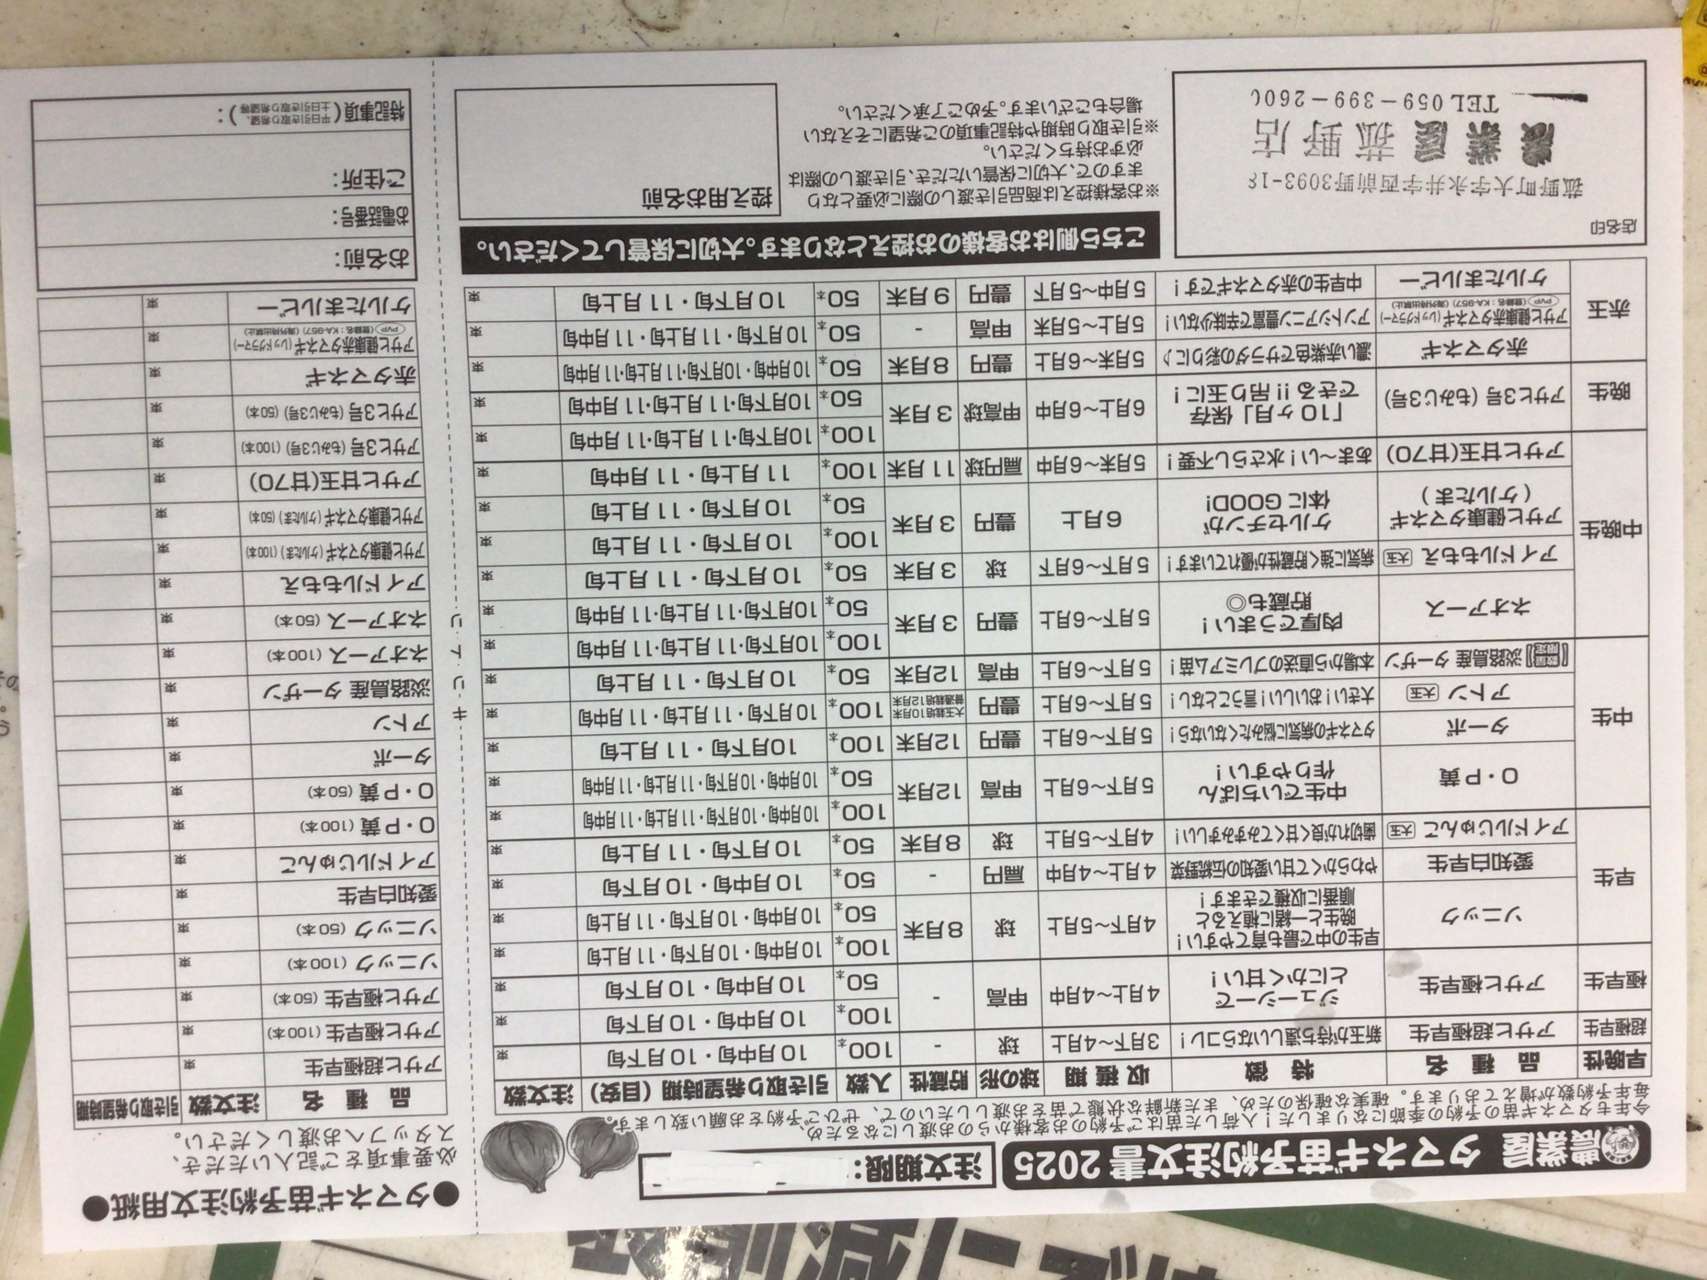 農業屋 タマネギ苗予約注文書 2025 注文期限：
今年もタマネギ苗の予約の季節になりました！入荷した苗はご予約のお客様からのお渡しになるため、
毎年予約数が増えております。確実な確保のため、また新鮮な状態で苗をお渡ししたいので、ぜひご予約をお願い致します。
早晩性 品種名 特徴 収穫期 球の形 貯蔵性 入数 引き取り希望時期（目安） 注文数
超極早生 アサヒ超極早生 新玉が待ち遠しいならコレ！ 3月下～4月上 球 - 100本 10月中旬・10月下旬 束
極早生 アサヒ極早生 ジューシーで とにかく甘い！ 4月上～4月中 甲高 - 100本 10月中旬・10月下旬 束
50本 10月中旬・10月下旬 束
早生 ソニック 早生の中で最も育てやすい！ 晩生と一緒に植えると 順番に収穫できます！ 4月下～5月上 球 8月末 100本 10月中旬・10月下旬・11月上旬 束
50本 10月中旬・10月下旬・11月上旬 束
愛知白早生 やわらかくて甘い愛知の伝統野菜 4月上～4月中 扁円 - 50本 10月中旬・10月下旬 束
アイドルじゅんこ 大玉 歯切れが良く甘くてみずみずしい！ 4月下～5月上 球 8月末 50本 10月下旬・11月上旬 束
中生 O・P黄 中生でいちばん 作りやすい！ 5月下～6月上 甲高 12月末 100本 10月中旬・10月下旬・11月上旬・11月中旬 束
50本 10月中旬・10月下旬・11月上旬・11月中旬 束
ターボ タマネギの病気に悩みたくないなら！ 5月下～6月上 豊円 12月末 100本 10月下旬・11月上旬 束
アトン 大玉 大きい！おいしい！言うことなし！ 5月下～6月上 豊円 大玉栽培10月末 普通栽培12月末 100本 10月下旬・11月上旬・11月中旬 束
淡路島産 ターザン 本場から直送のプレミアム苗！ 5月下～6月上 甲高 12月末 50本 10月下旬・11月上旬 束
中晩生 ネオアース 肉厚でうまい！ 貯蔵も◎ 5月下～6月上 豊円 3月末 100本 10月下旬・11月上旬・11月中旬 束
50本 10月下旬・11月上旬・11月中旬 束
アイドルももえ 大玉 病気に強く貯蔵性が優れています！ 5月下～6月下 球 3月末 50本 10月下旬・11月上旬 束
アサヒ健康タマネギ （ケルたま） ケルセチンが 体に GOOD! 6月上 豊円 3月末 100本 10月下旬・11月上旬 束
50本 10月下旬・11月上旬 束
アサヒ甘玉(甘70) あま～い！水さらし不要！ 5月末～6月中 扁円球 11月末 100本 11月上旬・11月中旬 束
晩生 アサヒ3号 (もみじ3号) 「10ヶ月」保存 できる!!吊り玉に！ 6月上～6月中 甲高球 3月末 100本 10月下旬・11月上旬・11月中旬 束
50本 10月下旬・11月上旬・11月中旬 束
赤玉 赤タマネギ 濃い赤紫色でサラダの彩りに♪ 5月末～6月上 豊円 8月末 50本 10月中旬・10月下旬・11月上旬・11月中旬 束
アサヒ健康赤タマネギ (レッドグラマー) PVP (登録名：KA-957) (海外持出禁止) アントシアニン豊富で辛味少ない！ 5月上～5月末 甲高 - 50本 10月下旬・11月上旬・11月中旬 束
ケルたまルビー 中早生の赤タマネギです！ 5月中～5月下 豊円 9月末 50本 10月下旬・11月上旬 束
店名印
菰野町大字永井字西前野3093-18
農業屋 菰野店
TEL 059-399-2600
こちら側はお客様のお控えとなります。大切に保管してください。
※お客様控えは商品引き渡しの際に必要となり
ますので、大切に保管いただき、引き渡しの際は
必ずお持ちください。
※引き取り時期や特記事項のご希望にそえない
場合もございます。予めご了承ください。
控え用お名前
キリトリ
●タマネギ苗予約注文用紙●
必要事項をご記入いただき、
スタッフへお渡しください。
品種名 注文数 引き取り希望時期
アサヒ超極早生 束
アサヒ極早生 (100本) 束
アサヒ極早生 (50本) 束
ソニック (100本) 束
ソニック (50本) 束
愛知白早生 束
アイドルじゅんこ 束
O・P黄 (100本) 束
O・P黄 (50本) 束
ターボ 束
アトン 束
淡路島産 ターザン 束
ネオアース (100本) 束
ネオアース (50本) 束
アイドルももえ 束
アサヒ健康タマネギ (ケルたま) (100本) 束
アサヒ健康タマネギ (ケルたま) (50本) 束
アサヒ甘玉(甘70) 束
アサヒ3号 (もみじ3号) (100本) 束
アサヒ3号 (もみじ3号) (50本) 束
赤タマネギ 束
アサヒ健康赤タマネギ (レッドグラマー) PVP (登録名：KA-957) (海外持出禁止) 束
ケルたまルビー 束
お名前：
お電話番号：
ご住所：
特記事項（平日引き取り希望、土日引き取り希望等）：